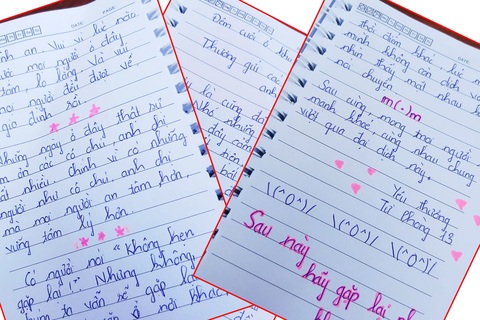 DATE PAGE
anh an vui vì lúc nào
mọi người ở đây
tâm, lo lắng và vui
mọi người đều được về
gia đình rồi.
Những ngày ở đây thật sự
ơn các cô chú anh chị
rất nhiều. Chính vì có những
người như cô chú anh chị
mà mọi người an tâm hơn,
vững tâm lý hơn.
Có người nói "Không hẹn
gặp lại". Nhưng không,
ta vẫn sẽ gặp lại
ở nơi khác
DATE
Đêm cuối ở khu
Thương gửi các
anh
lai cũng đã
Nhớ những
đây cảm
hơn,
DATE PAGE
thời điểm khác, lúc
mình không còn dịch và
nhìn thấy mặt nhau
nói chuyện.
m(.)m
Sau cùng, mong mọi người
mạnh khỏe, cùng nhau chung
vượt qua đại dịch này.
Yêu thương
Từ phòng 13
\(^o^)/ \(^o^)/ \(^o^)/
Sau này
hãy gặp lại